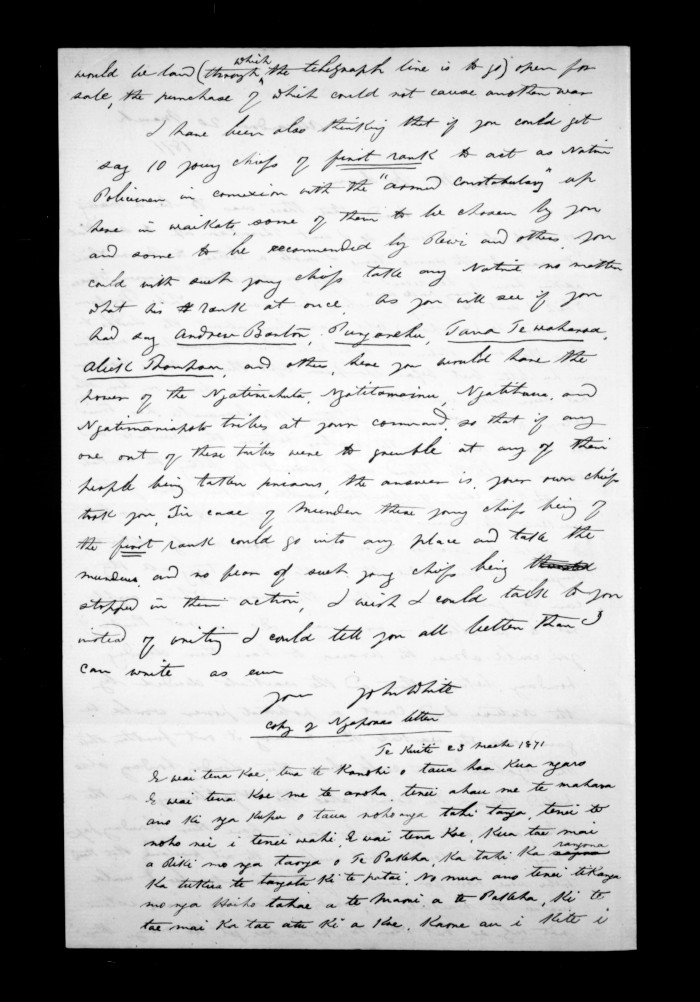 would be land (through which the telegraph line is to go) open for
sale, the purchase of which could not cause another war
I have been also thinking that if you could get
say 10 young chiefs of first rank to act as Native
Policemen in connexion with the "armed constabulary" up
here in waikato, some of them to be chosen by you
and some to be recomended by Rewi and others, you
could with such young chiefs take any Native no matter
what his rank at once. As you will see if you
had say Andrew Barton, Te
Alick and others, here you would have the
power of the Ngatimahuta, Ngatitamainu, Ngatihaua, and
Ngatimaniapoto tribes at your command, so that if any
one out of these tribes were to grumble at any of their
people being taken prisoners, the answer is, your own chiefs
took you, In case of murder these young chiefs being of
the first rank could go into any place and take the
murderer, and no fear of such young chiefs being
stopped in their action, I wish I could talk to you
instead of writing I could tell you all better than I
can write as ever
your John White
copy of Ngapora's letter
Te Kuiti 23 March 1871
E wai tena koe, tena te kanohi o taua haa kua ngaro
E wai tena koe me te aroha, tenei ahau me te mahara
ano ki nga kupu o taua nohoanga tahi tanga, tenei te
noho nei i tenei wahi, E wai tena koe, Kua tae mai
a Piki mo nga taonga o Te Pakeha, Ka tahi ka rangona
Ka tukua te tangata ki te patai. No mua ano tenei tikanga
mo nga Hoiho tahae a te Maori a te Pakeha, ki te
tae mai ka tae atu ki a koe. Kaore au i kite i